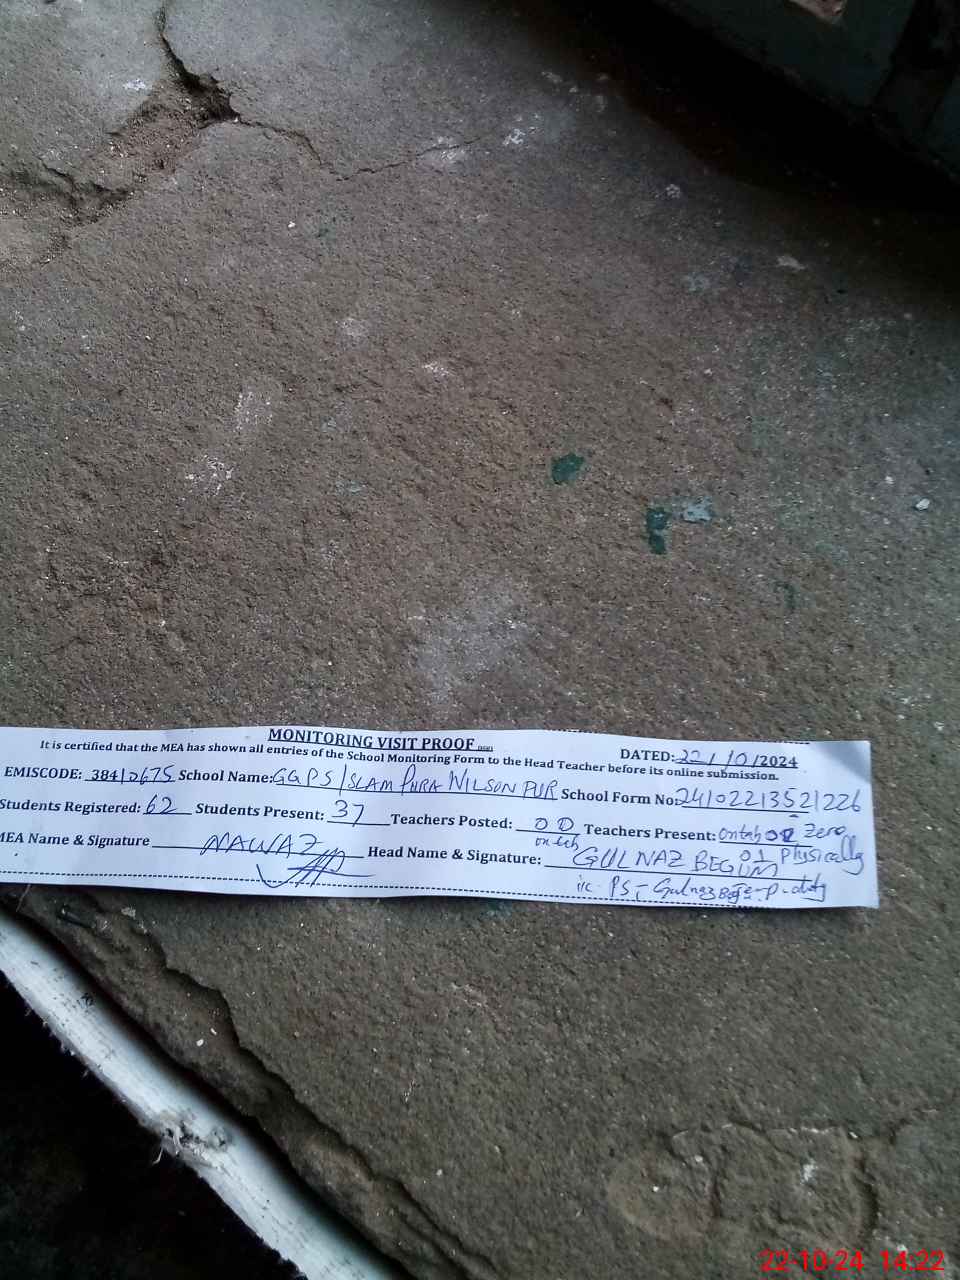 MONITORING VISIT PROOF
It is certified that the MEA has shown all entries of the School Monitoring Form to the Head Teacher before its online submission.
DATED: 22/10/2024
EMISCODE: 38412675 School Name: GGPS ISLAM PURA WILSON PUR School Form No: 24102213521226
Students Registered: 62 Students Present: 37 Teachers Posted: 00 on tab Teachers Present: on tab Zero
01 Physically
MEA Name & Signature NAWAZ Head Name & Signature: GULNAZ BEGUM
i/c PST Gulnaz
22-10-24 14:22